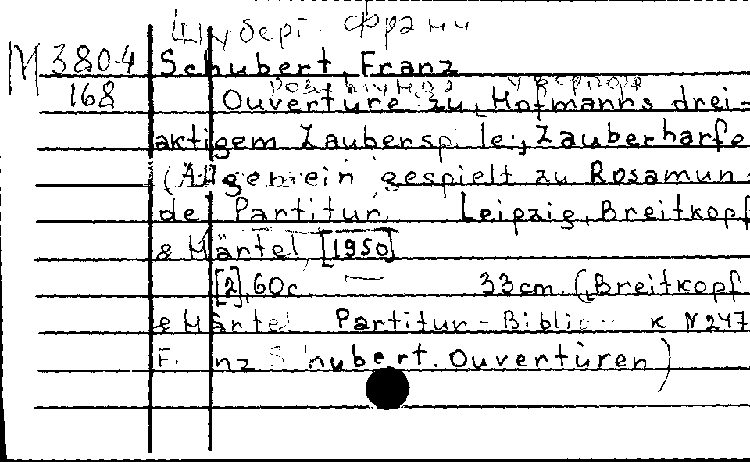 Шуберт Франц
M 3804 Schubert, Franz
168 Ouvertüre zu Hofmanns drei-
aktigem Zauberspiele "Zauberharfe
(Allgemein gespielt zu Rosamun-
de) Partitur. Leipzig, Breitkopf
& Härtel, [1950]
[2], 60c. 33cm. (Breitkopf
& Härtel Partitur-Biblio к N 247
Franz Schubert. Ouvertüren)